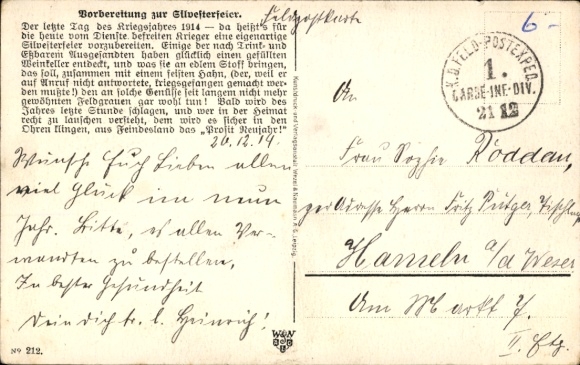 Vorbereitung zur Silvesterfeier.
Der letzte Tag des Kriegsjahres 1914 — da heißt's für
die heute vom Dienste befreiten Krieger eine eigenartige
Silvesterfeier vorzubereiten. Einige der nach Trink- und
Eßbarem Ausgesandten haben glücklich einen gefüllten
Weinkeller entdeckt, und was sie an edlem Stoff bringen,
das soll, zusammen mit einem feisten Hahn, (der, weil er
auf Anruf nicht antwortete, kriegsgefangen gemacht wer-
den mußte!) den an solche Genüsse seit langem nicht mehr
gewöhnten Feldgrauen gar wohl tun! Bald wird des
Jahres letzte Stunde schlagen, und wer in der Heimat
recht zu lauschen versteht, dem wird es sicher in den
Ohren klingen, aus Feindesland das „Prosit Neujahr!"
20.12.14.
Wünsche Euch Lieben allen
viel Glück im neuen
Jahr. Bitte, es allen Ver-
wandten zu bestellen,
In bester Gesundheit
Dein dich tr. l. Heinrich!
No 212.
W&N
Feldpostkarte
6-
K.D. FELD-POSTEXPED.
1.
GARDE-INF.-DIV.
21 12
An
Frau Sophie Röddau,
per Adresse Herrn Fritz Rütger,
Hameln a/d Weser
Am Markt 7.
II. Etg.